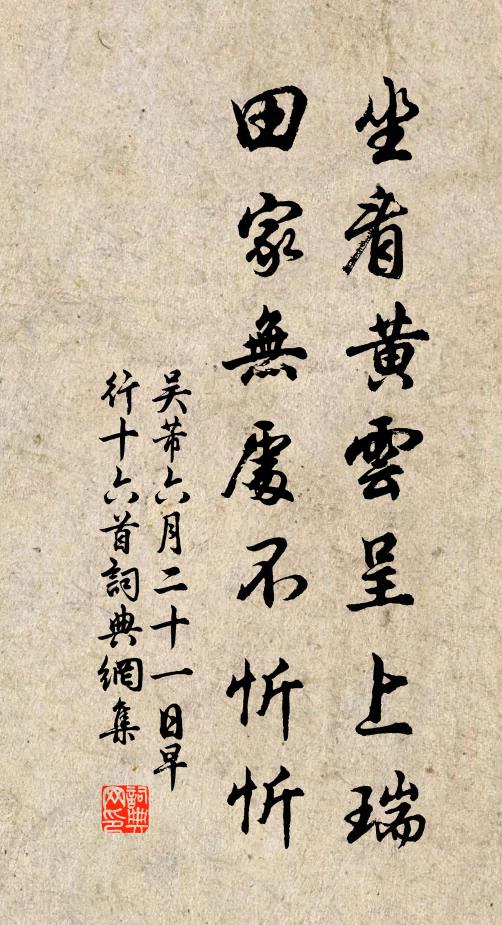 坐看黃雲呈上瑞
田家無處不忻忻
吴芾六月二十一日早
行十六首詞典網集
詞典
网印